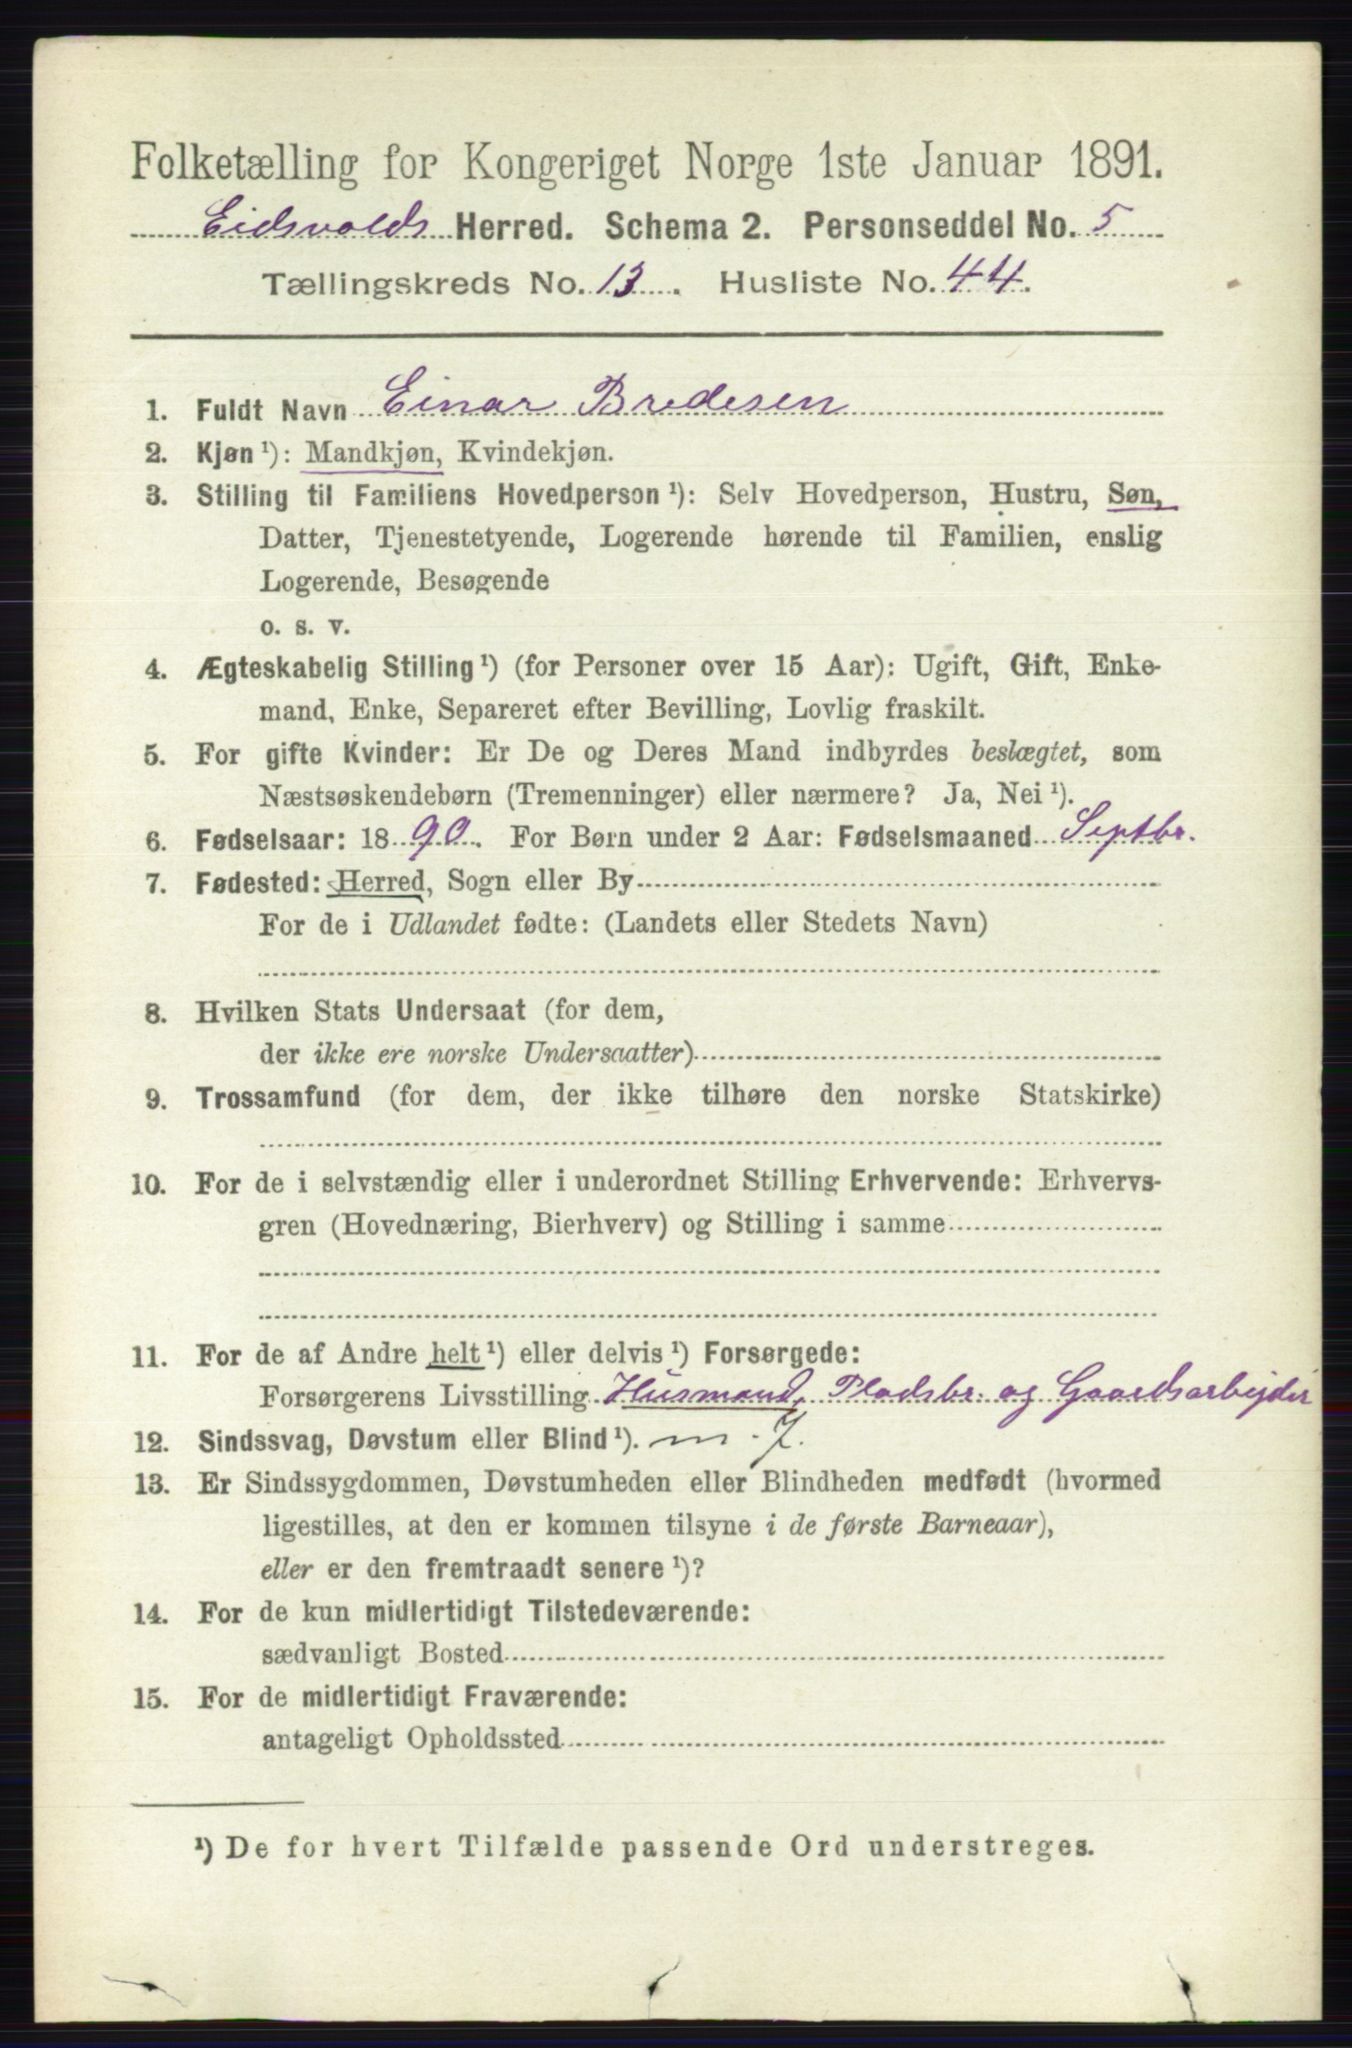 Folketælling for Kongeriget Norge 1ste Januar 1891.
Eidsvolds Herred. Schema 2. Personseddel No. 5
Tællingskreds No. 13. Husliste No. 44.
1. Fuldt Navn Einar Bredesen
2. Kjøn ¹): Mandkjøn, Kvindekjøn.
3. Stilling til Familiens Hovedperson ¹): Selv Hovedperson, Hustru, Søn,
Datter, Tjenestetyende, Logerende hørende til Familien, enslig
Logerende, Besøgende
o. s. v.
4. Ægteskabelig Stilling ¹) (for Personer over 15 Aar): Ugift, Gift, Enke-
mand, Enke, Separeret efter Bevilling, Lovlig fraskilt.
5. For gifte Kvinder: Er De og Deres Mand indbyrdes beslægtet, som
Næstsøskendebørn (Tremenninger) eller nærmere? Ja, Nei ¹).
6. Fødselsaar: 1890. For Børn under 2 Aar: Fødselsmaaned Septbr.
7. Fødested: Herred, Sogn eller By
For de i Udlandet fødte: (Landets eller Stedets Navn)
8. Hvilken Stats Undersaat (for dem,
der ikke ere norske Undersaatter)
9. Trossamfund (for dem, der ikke tilhøre den norske Statskirke)
10. For de i selvstændig eller i underordnet Stilling Erhvervende: Erhvervs-
gren (Hovednæring, Bierhverv) og Stilling i samme
11. For de af Andre helt ¹) eller delvis ¹) Forsørgede:
Forsørgerens Livsstilling Husmand, Pladsbr. og Gaardsarbejder
12. Sindssvag, Døvstum eller Blind ¹).
13. Er Sindssygdommen, Døvstumheden eller Blindheden medfødt (hvormed
ligestilles, at den er kommen tilsyne i de første Barneaar),
eller er den fremtraadt senere ¹)?
14. For de kun midlertidigt Tilstedeværende:
sædvanligt Bosted
15. For de midlertidigt Fraværende:
antageligt Opholdssted
¹) De for hvert Tilfælde passende Ord understreges.